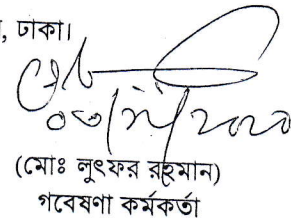 , ঢাকা।
(মোঃ লুৎফর রহমান)
গবেষণা কর্মকর্তা